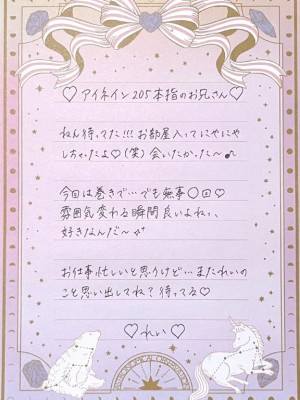 ♡アイネイン205本指のお兄さん♡
ねん待ってた!!!お部屋入ってにやにや
しちゃたよ♡(笑)会いたかった〜♪
今回は巻きで…でも無事〇回♡
雰囲気変わる瞬間良いよね、、
好きなんだ〜
お仕事忙しいと思うけど…またれいの
こと思い出してね?待ってる♡
♡れい♡
ASTRONOMICAL OBSERVATION